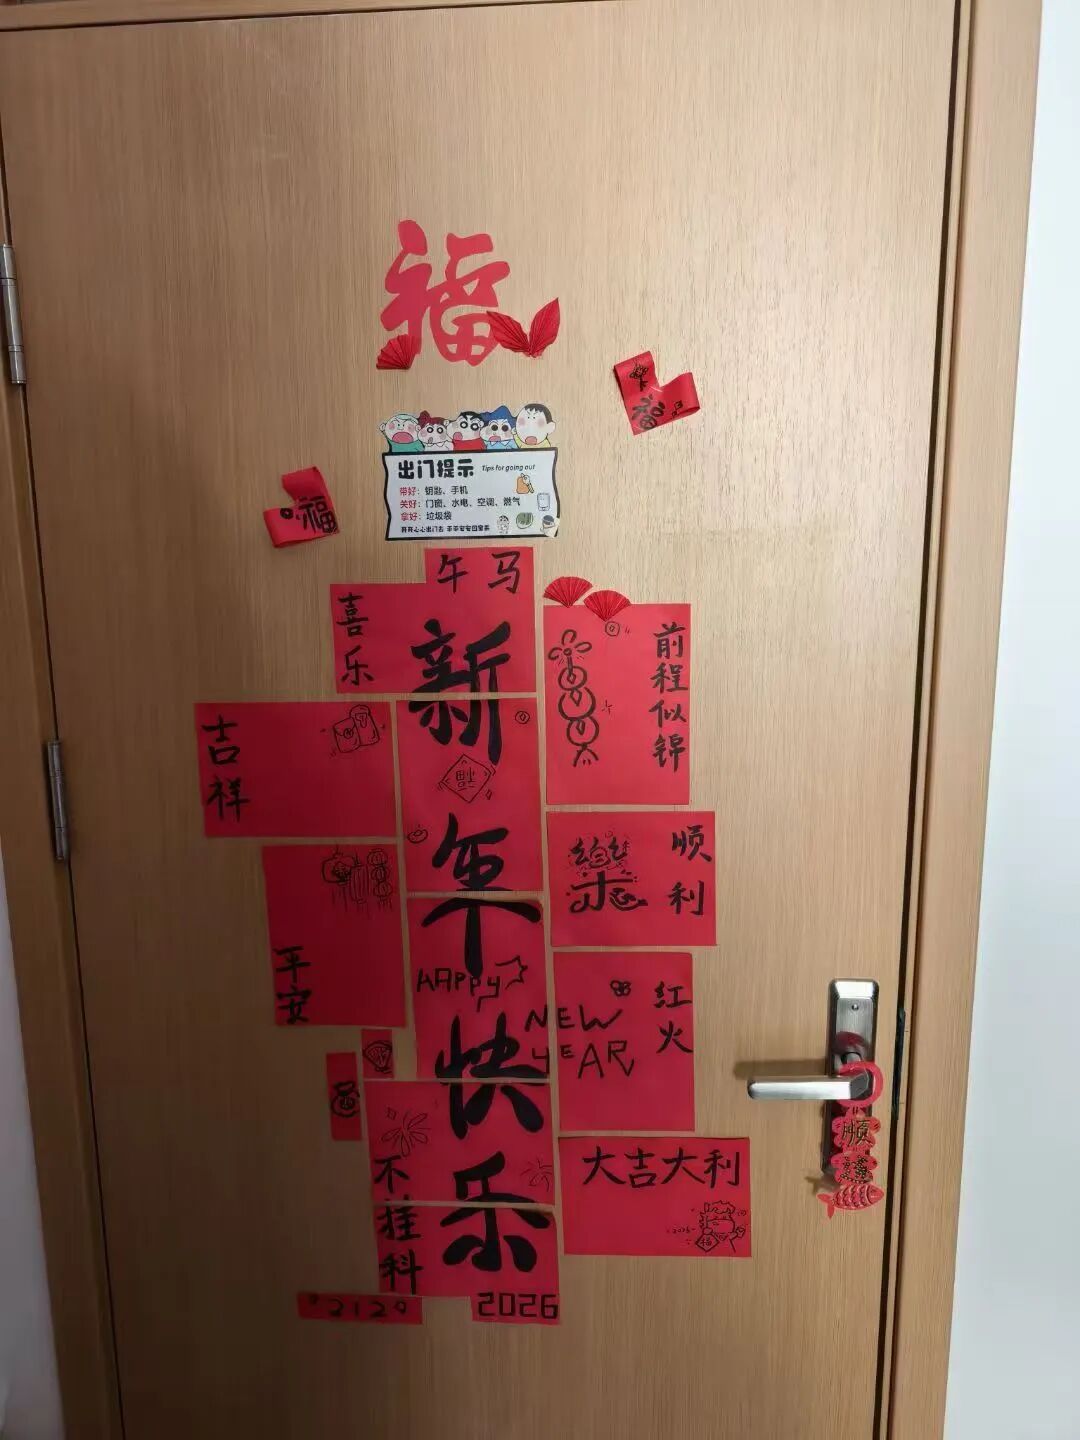 福
福
福
出门提示 Tips for going out
带好：钥匙、手机
关好：门窗、水电、空调、燃气
拿好：垃圾袋
午马
喜乐
新年快乐
前程似锦
吉祥
福
顺利
平安
HAPPY
NEW
YEAR
红火
不挂科
大吉大利
2026
福
2120
2026
顺